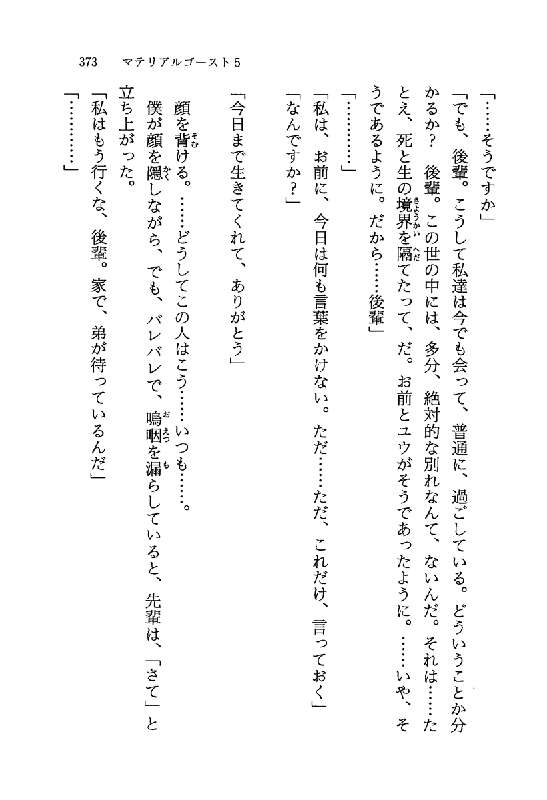 373　マテリアルゴースト5
「……そうですか」
「でも、後輩。こうして私達は今でも会って、普通に、過ごしている。どういうことか分
かるか？　後輩。この世の中には、多分、絶対的な別れなんて、ないんだ。それは……た
とえ、死と生の境界を隔てたって、だ。お前とユウがそうであったように。……いや、そ
うであるように。だから……後輩」
「…………」
「私は、お前に、今日は何も言葉をかけない。ただ……ただ、これだけ、言っておく」
「なんですか？」
「今日まで生きてくれて、ありがとう」
顔を背ける。……どうしてこの人はこう……いつも……。
僕が顔を隠しながら、でも、バレバレで、嗚咽を漏らしていると、先輩は、「さて」と
立ち上がった。
「私はもう行くな、後輩。家で、弟が待っているんだ」
「…………」